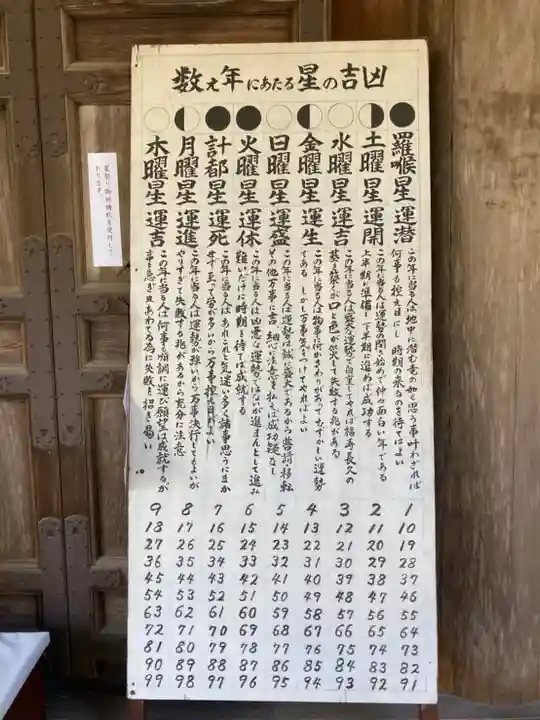 数え年にあたる星の吉凶
羅喉星 運潜
この年に当る人は地中に潜む竜の如く思う事叶わざれば
何事も控え目にし 時期の来るのを待てばよい
1 10 19 28 37 46 55 64 73 82 91
土曜星 運開
この年に当る人は運勢の開き始めで仲々面白い年である
上半期に準備し下半期に進めば成功する
2 11 20 29 38 47 56 65 74 83 92
水曜星 運吉
この年に当る人は盛大な運勢で自重してやれば福寿長久の
基を築くが口と色が災して失敗する兆がある
3 12 21 30 39 48 57 66 75 84 93
金曜星 運生
この年に当る人は物事に何かさわりがあってむづかしい運勢
である しかし万事気をつけてやればよい
4 13 22 31 40 49 58 67 76 85 94
日曜星 運盛
この年に当る人は運勢は誠に盛大であるから普請移転
その他万事に吉 細心に注意を払えば成功疑なし
5 14 23 32 41 50 59 68 77 86 95
火曜星 運休
この年に当る人は凶悪な運勢ではないが進まんとして進み
難いだけに時期を待てば成就する
6 15 24 33 42 51 60 69 78 87 96
計都星 運死
この年に当る人はあれこれと気迷い多く諸事思うにまか
せず至って労が多いから万事控え目がよい
7 16 25 34 43 52 61 70 79 88 97
月曜星 運進
この年に当る人は運勢が強いから万事決行してもよいが
やりすぎて失敗する兆があるから充分に注意
8 17 26 35 44 53 62 71 80 89 98
木曜星 運吉
この年に当る人は何事も順調に運び願望は成就するが
事を急ぎ且あわてる為に失敗を招き易い
9 18 27 36 45 54 63 72 81 90 99
星祭り御祈祷札を受付して
おります。